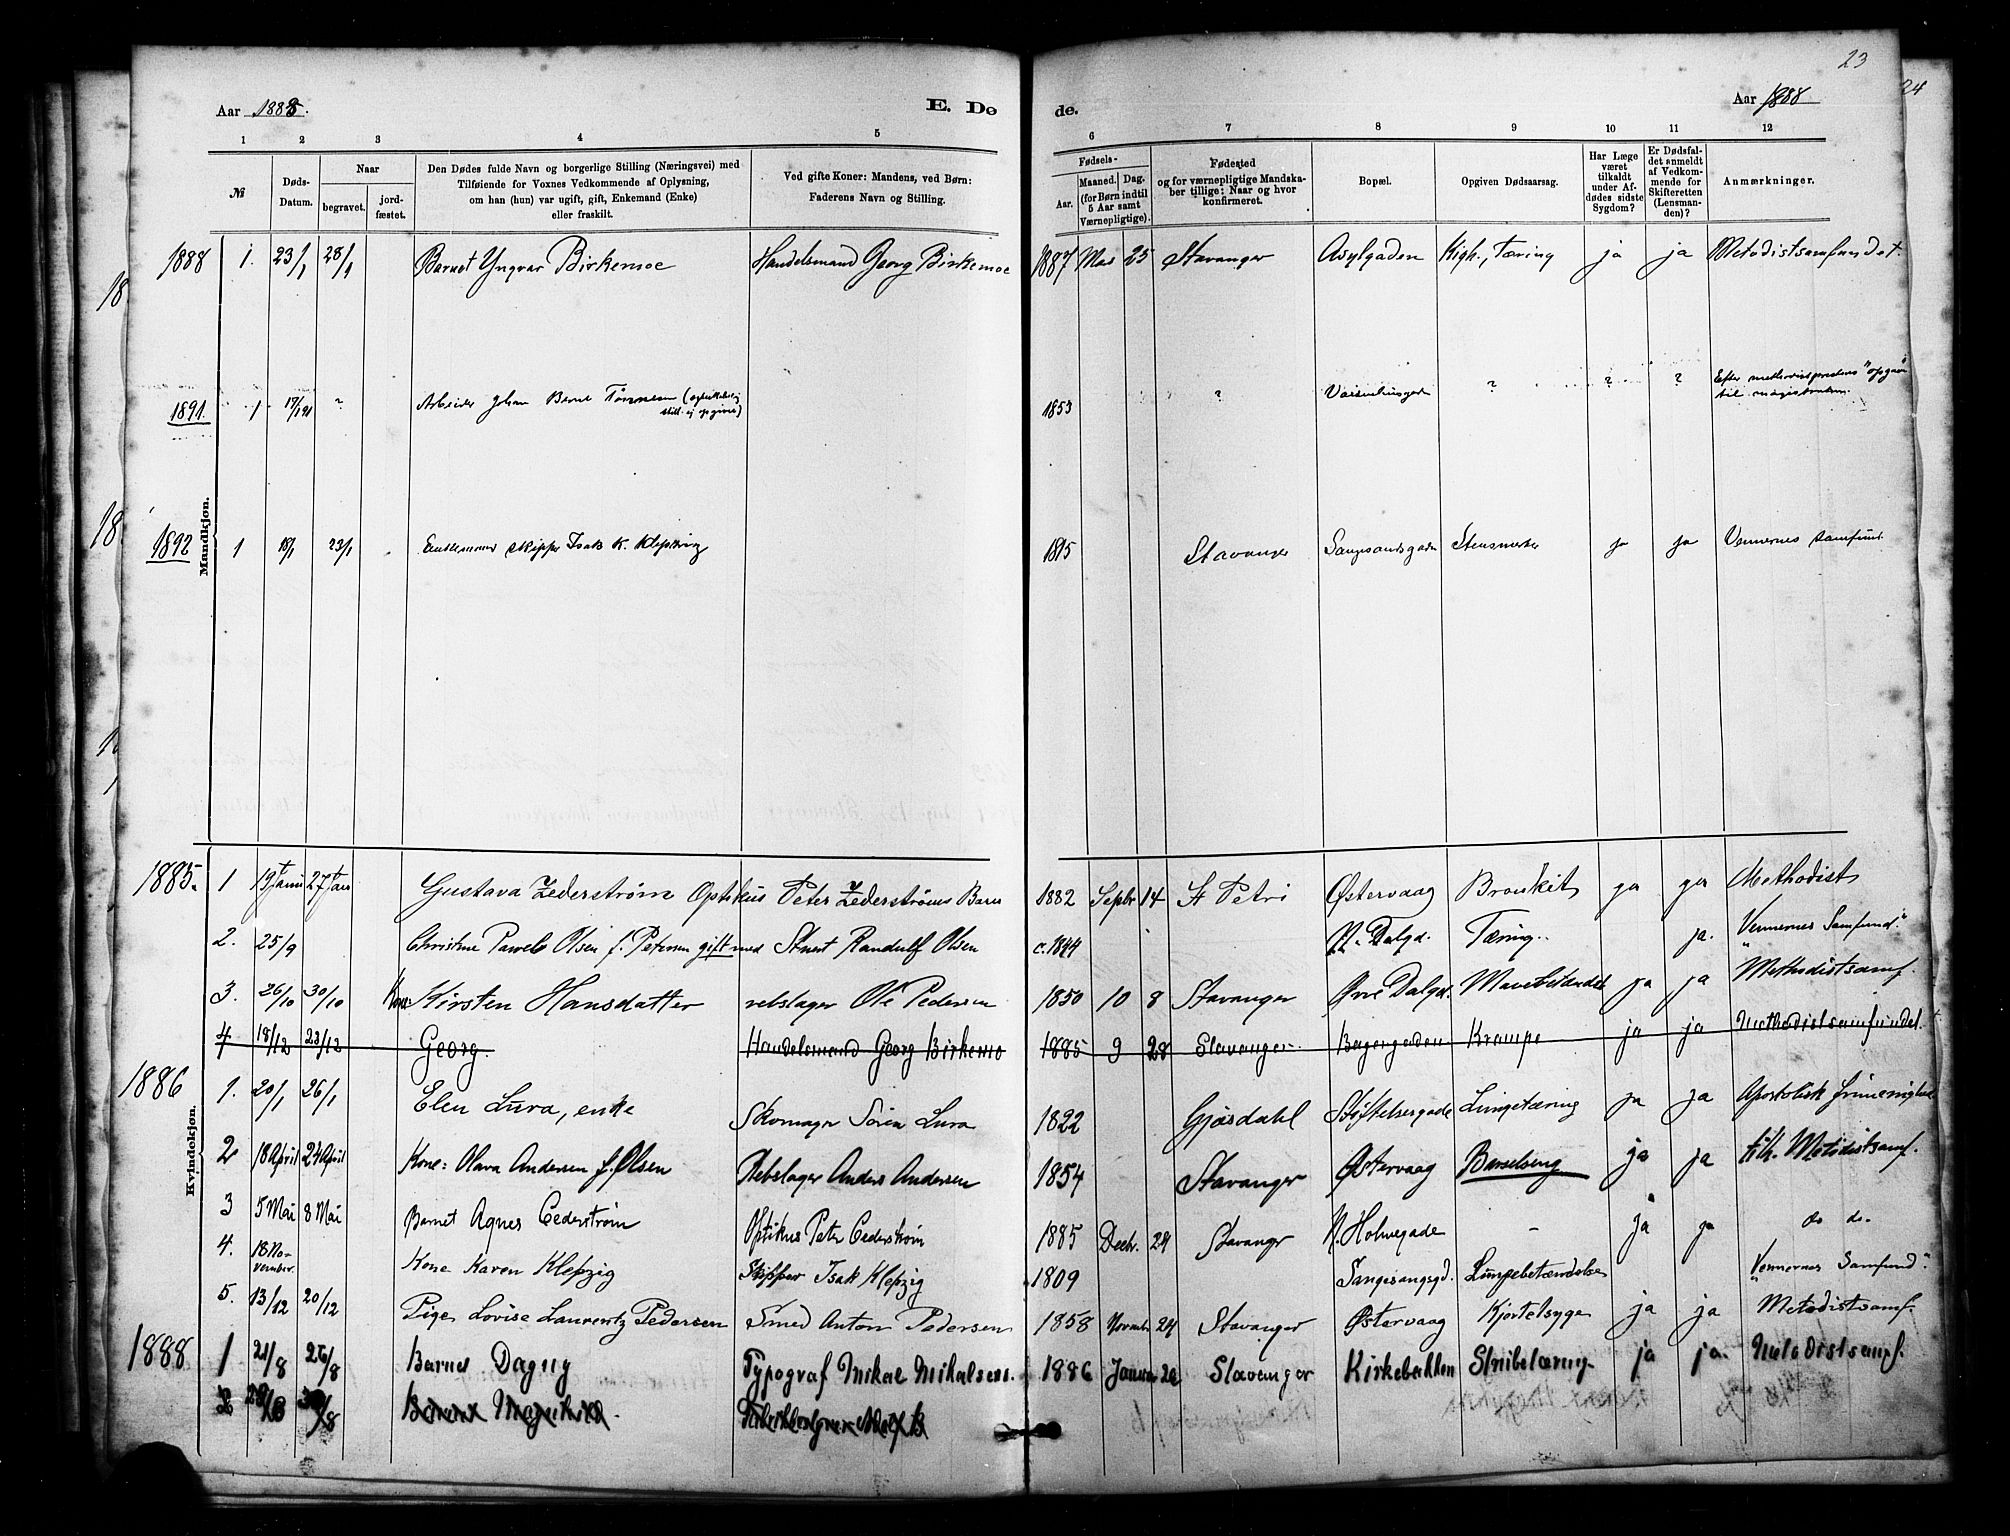 23
24
Aar 1885.
E. Dø
de.
Aar 1888
1 2 3 4 5 6 7 8 9 10 11 12
№
Døds-
Datum.
Naar
begravet.
jord-
fæstet.
Den Dødes fulde Navn og borgerlige Stilling (Næringsvei) med
Tilføiende for Voxnes Vedkommende af Oplysning,
om han (hun) var ugift, gift, Enkemand (Enke)
eller fraskilt.
Ved gifte Koner: Mandens, ved Børn:
Faderens Navn og Stilling.
Fødsels-
Aar.
Maaned. Dag.
(for Børn indtil
5 Aar samt
Værnepligtige).
Fødested
og for værnepligtige Mandska-
ber tillige: Naar og hvor
konfirmeret.
Bopæl.
Opgiven Dødsaarsag.
Har Læge
været
tilkaldt
under Af-
dødes sidste
Sygdom?
Er Dødsfal-
det anmeldt
af Vedkom-
mende for
Skifteretten
(Lensman-
den)?
Anmærkninger.
Mandkjøn.
1888 1. 23/1 28/1 Barnet Yngvar Birkemoe Handelsmand Georg Birkemoe 1887 Mai 25 Stavanger Asylgaden Kigh., Tæring ja ja Metodistsamfundet.
1891 1 17/1 91 ? Arbeider Johan Bernt Tønnesen (
still. ej opgivet)
1853 ? ? ? ? Efter methodistprestens "opgave"
til magistraten
1892 1 18/1 23/1 Enkemand skipper Isak K. Klepzig 1815 Stavanger Stensmerter ja ja Vennernes Samfund
Kvindekjøn.
1885. 1 19 Janu 27 Janu Gustava Zederstrøm Optikus Peter Zederstrøms Barn 1882 Sepbr 14 St Petri Østervaag Bronkit ja ja Methodist
2. 25/9 Christine Pawels Olsen f. Petersen gift med Stuert Randulf Olsen c. 1844 N. Dalgd. Tæring. ja. "Vennernes Samfund."
3. 26/10 30/10 Kone: Kirsten Hansdatter rebslager Ole Pedersen 1850 10 8 Stavanger Øvre Dalgd. Mavebetændels ja ja Methodistsamf.
4 18/12 23/12 Georg. Handelsmand Georg Birkemo 1885 9 28 Stavanger. Bergengaden Krampe ja ja Methodistsamfundet.
1886 1. 20/1 26/1 Elen Lura, enke Skomager Søren Lura 1822 Gjæsdahl Stiftelsesgade Lungetæring ja ja Apostolisk frimenighed
2 18 April 24 April Kone: Olava Andersen f. Olsen Rebslager Anders Andersen 1854 Stavanger Østervaag Barselseng ja ja tilh. Metodistsamf.
3 5 Mai 8 Mai Barnet Agnes Cederstrøm Optikus Peter Cederstrøm 1885 Decbr. 24 Stavangr N. Holmegade - ja ja do do.
4. 18 No-
vember. Kone Karen Klepzig Skipper Isak Klepzig 1809 Sangesangsgd. Lungebetændelse "Vennernes Samfund".
5. 13/12 20/12 Pige Lovise Laurentz Pedersen Smed Anton Pedersen 1858 Novembr 24 Stavanger Østervaag Kjertelsyge ja ja Metodistsamf.
1888 1 21/8 26/8 Barnet Dagny Typograf Mikal Mikalsen. 1886 Januar Stavanger Kirkebakken Strubetæring. ja ja. Metodistsamf.
2 28/8 30/8 Barnet Magnhild.